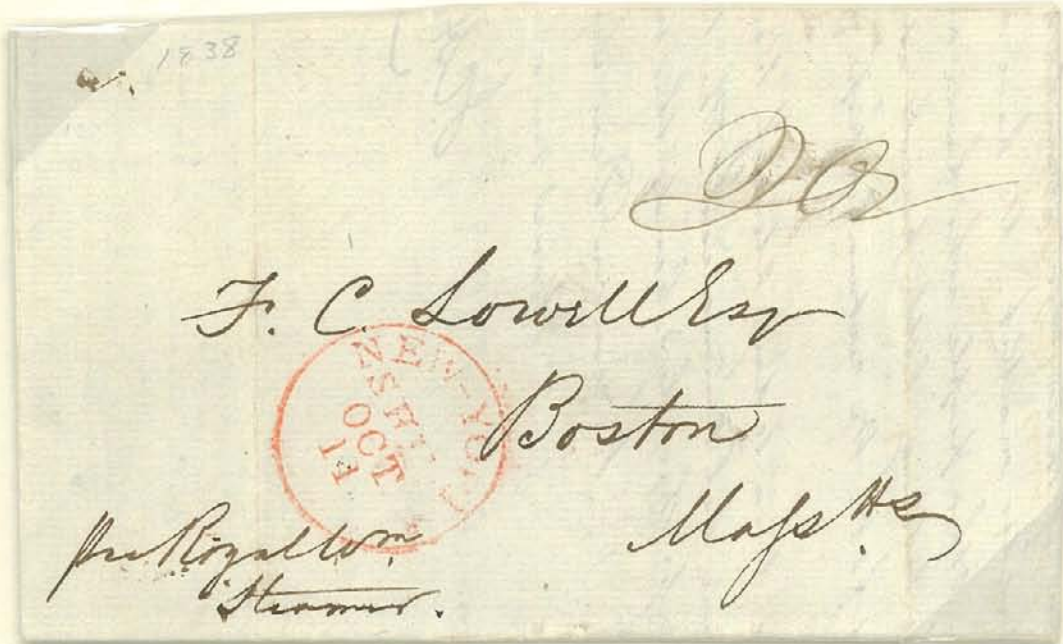 1838
F. C. Lowell Esq
Boston
Mass.tts
NEW-YORK
SHIP
OCT
14
per Royal Wm
Steamer.